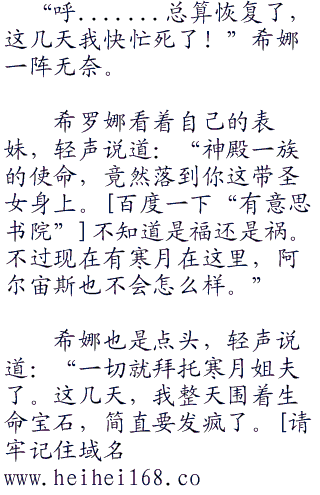 “呼.......总算恢复了，
这几天我快忙死了！”希娜
一阵无奈。
希罗娜看着自己的表
妹，轻声说道：“神殿一族
的使命，竟然落到你这带圣
女身上。[百度一下“有意思
书院”]不知道是福还是祸。
不过现在有寒月在这里，阿
尔宙斯也不会怎么样。”
希娜也是点头，轻声说
道：“一切就拜托寒月姐夫
了。这几天，我整天围着生
命宝石，简直要发疯了。[请
牢记住域名
www.heihei168.co